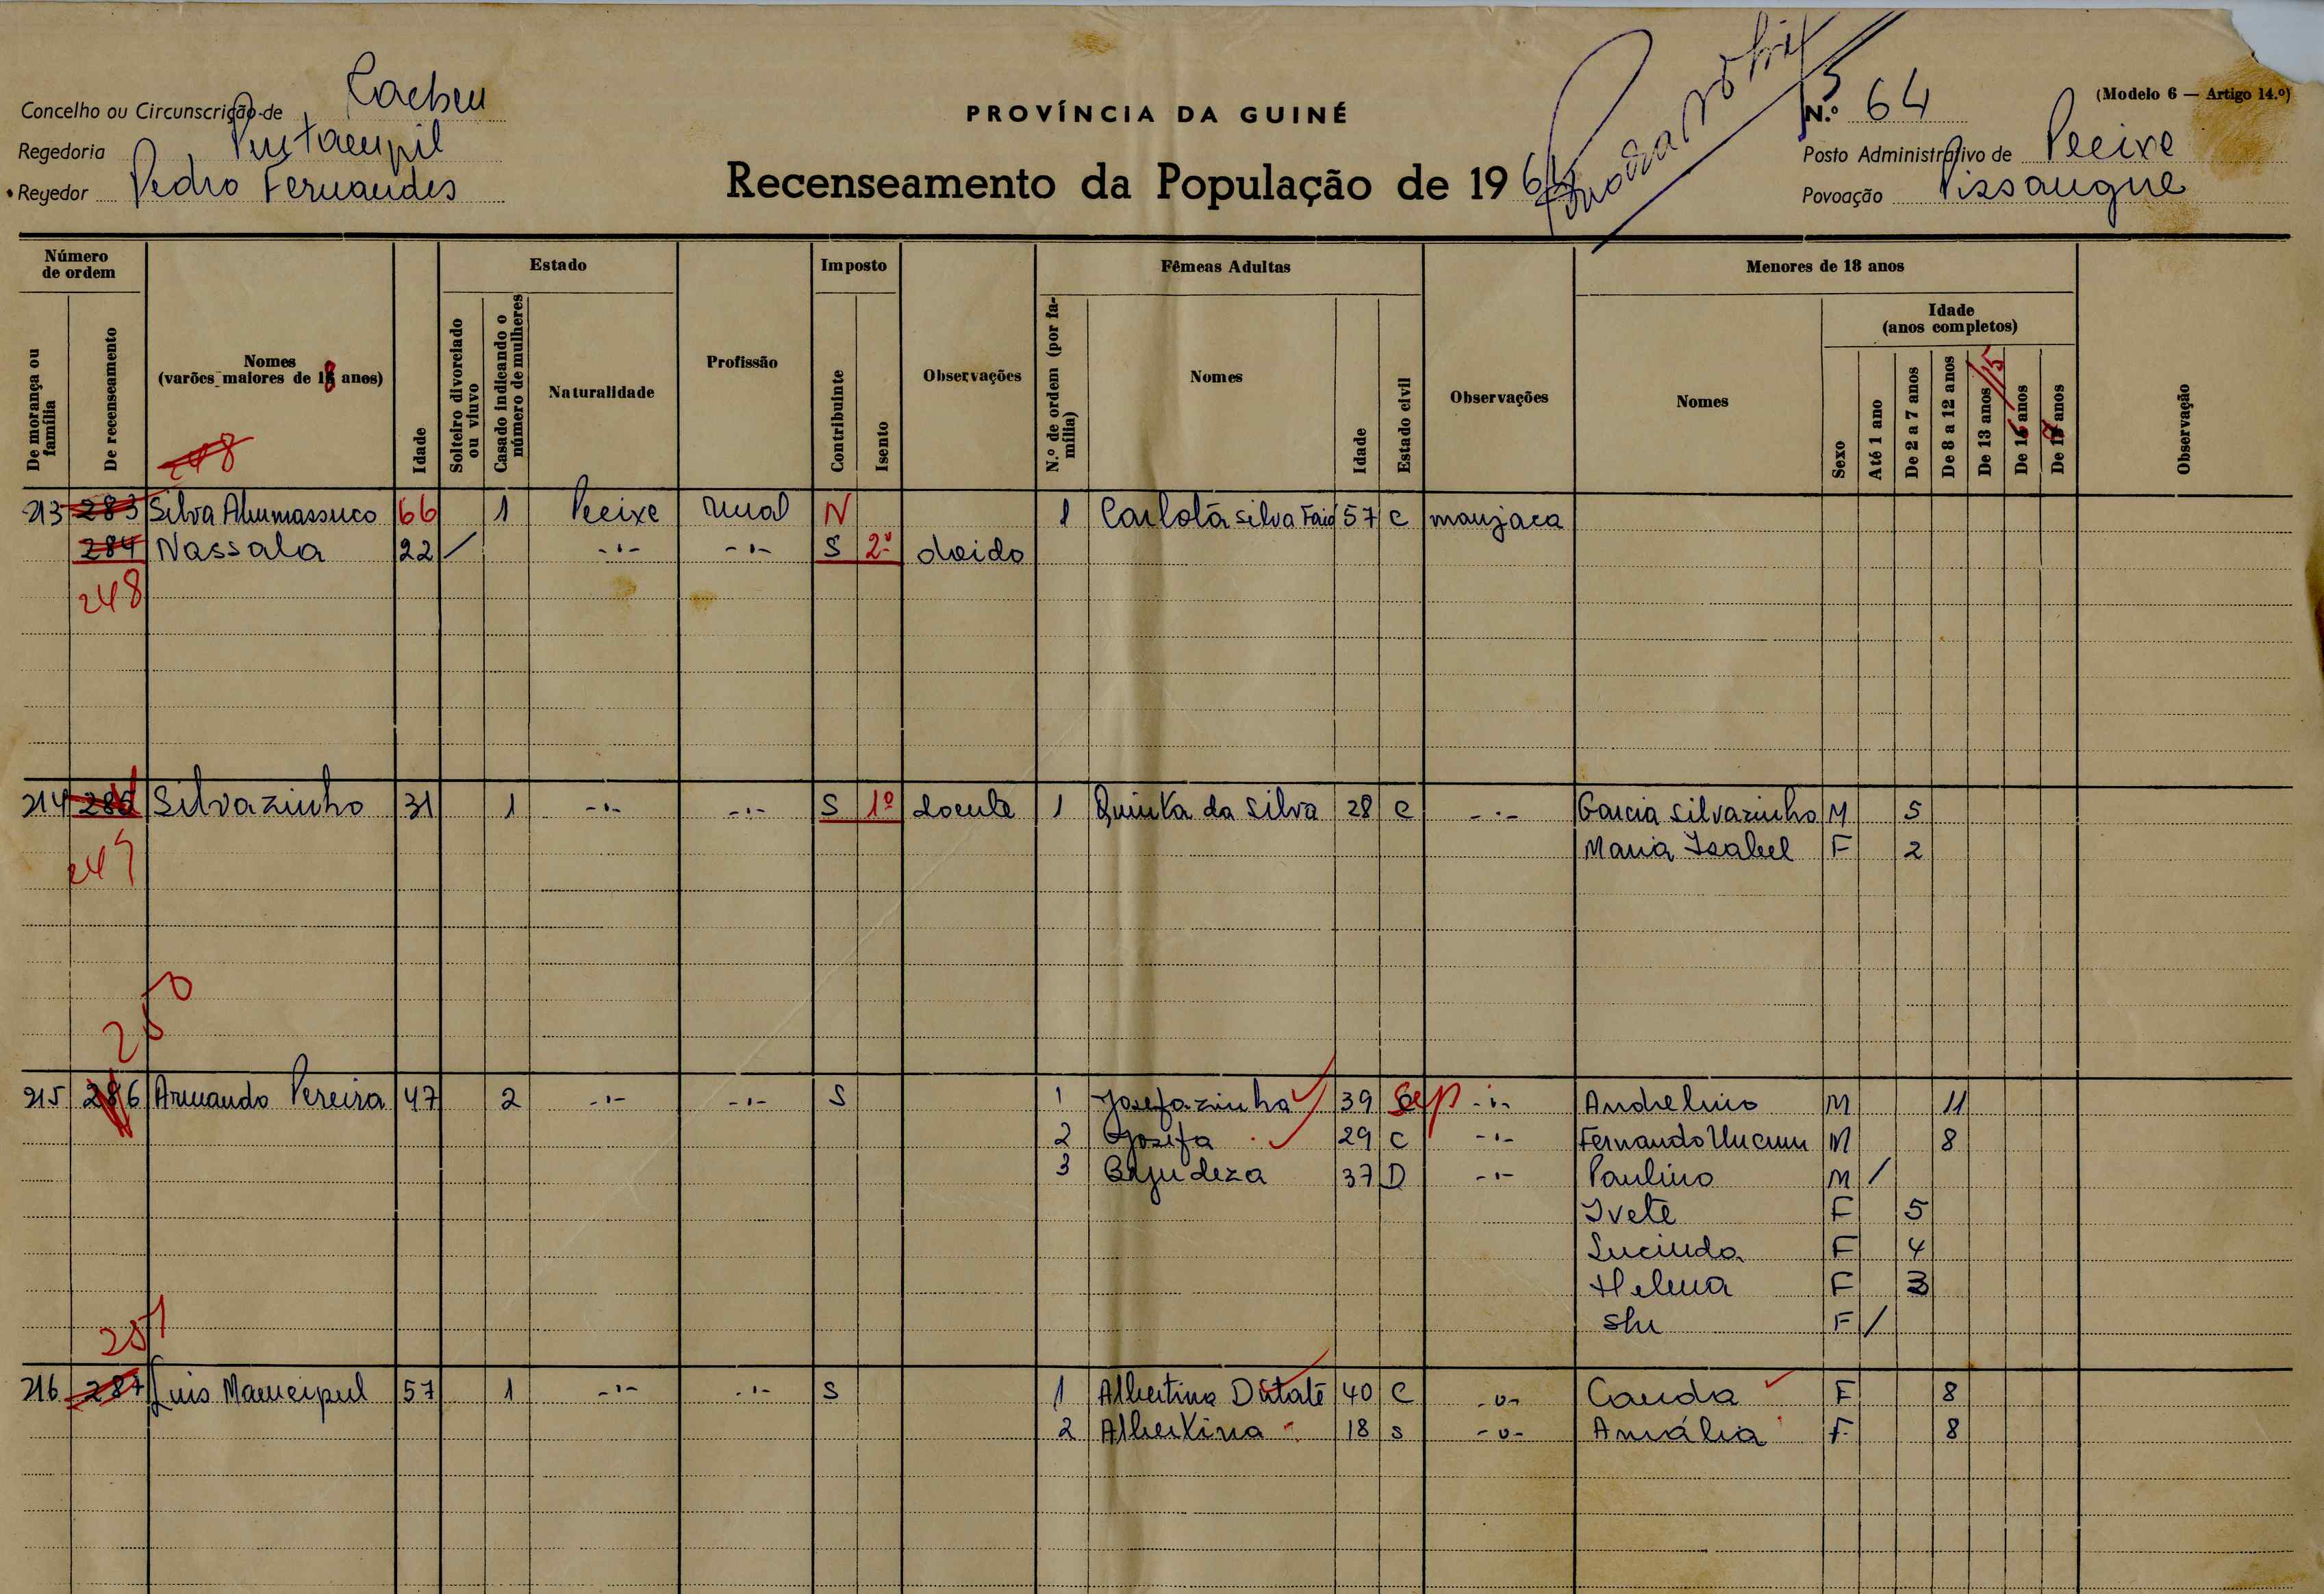 Concelho ou Circunscrição de Cacheu
Regedoria
Regedor Pedro Fernandes
PROVÍNCIA DA GUINÉ
Recenseamento da População de 19
(Modelo 6 — Artigo 14.º)
N.º 64
Posto Administrativo de Pecixe
Povoação Pissangue
Número de ordem
De morança ou família
De recenseamento
Nomes (varões maiores de 18 anos)
Idade
Estado
Solteiro divorciado ou viuvo
Casado indicando o número de mulheres
Naturalidade
Profissão
Imposto
Contribuinte
Isento
Observações
Fêmeas Adultas
N.º de ordem (por família)
Nomes
Idade
Estado civil
Observações
Menores de 18 anos
Nomes
Idade (anos completos)
Sexo
Até 1 ano
De 2 a 7 anos
De 8 a 12 anos
De 13 anos /15
De 16 anos
De 17 anos
Observação
248
213 283 Silva 66 1 Pecixe rural N 1 Carlota Silva 57 C manjaca
284 Nassala 22 / -"- -"- S 2º doido
248
214 285 Silvazinho 31 1 -"- -"- S 1º doente 1 Quinta da Silva 28 C -"- Garcia Silvazinho M 5
249 Maria Isabel F 2
250
215 286 Armando Pereira 47 2 -"- -"- S 1 Josefazinha 39 Sep -"- Andrelino M 11
2 Josefa 29 C -"- Fernando M 8
3 37 D -"- Paulino M /
Ivete F 5
Lucinda F 4
Helena F 3
F /
251
216 287 Luis 57 1 -"- -"- S 1 Albertina 40 C -"- Canda F 8
2 Albertina 18 S -"- Amália F 8